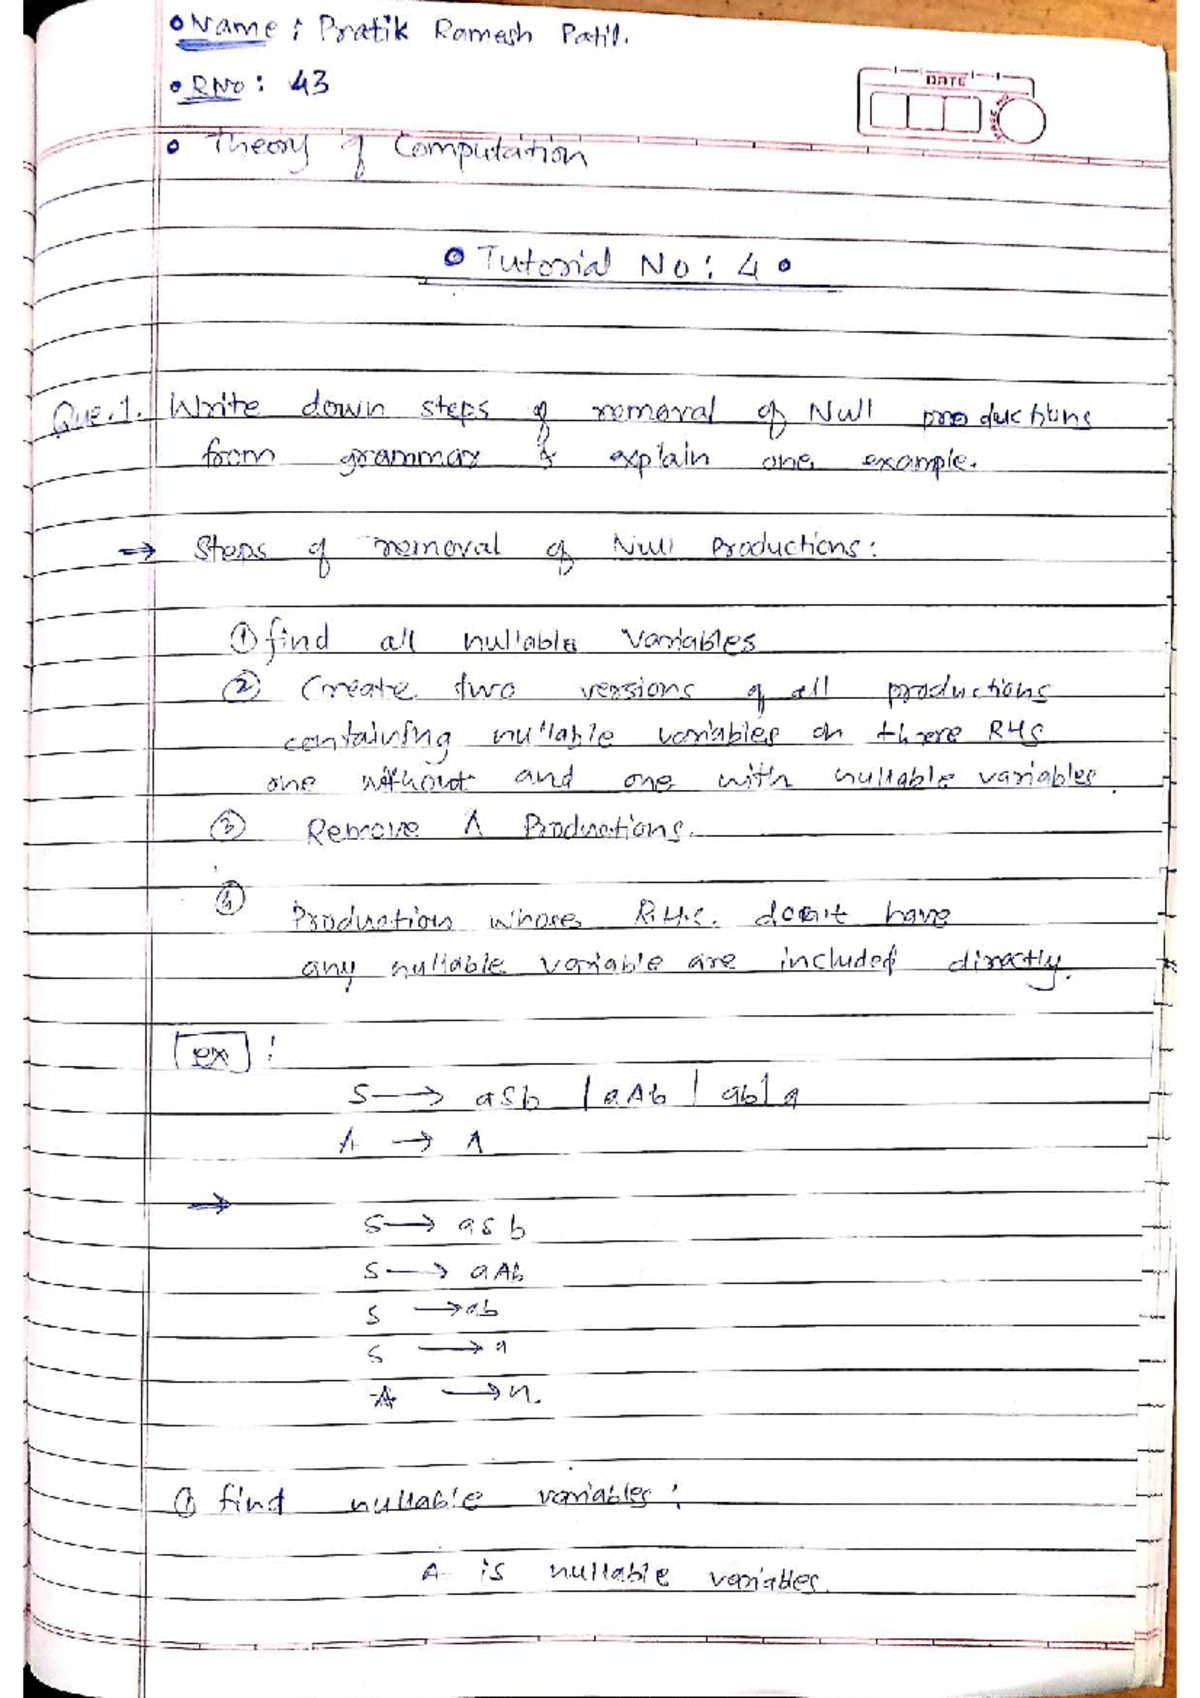 • Name : Pratik Ramesh Patil.
• RNo : 43
DATE
• Theory of Computation
• Tutorial No : 4 •
Que.1. Write down steps of removal of Null productions
from grammar & explain one example.
⇒ Steps of removal of Null Productions :
① find all nullable Variables
② Create two versions of all productions
containing nullable variables on there RHS
one without and one with nullable variables.
③ Remove Λ Productions.
④ Production whose R.H.S. don't have
any nullable variable are included directly.
ex :
S → aSb | aAb | ab | a
A → Λ
⇒
S → aSb
S → aAb
S → ab
S → a
A → Λ.
① find nullable variables :
A is nullable variables.